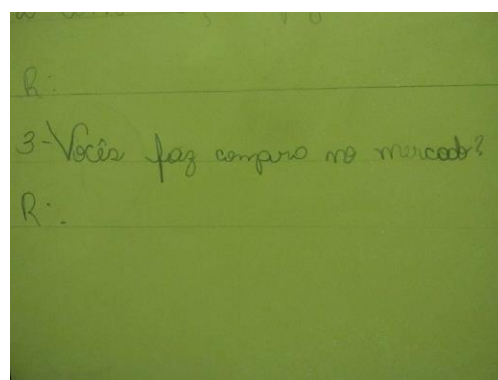 R:
3-Vocês faz compra no mercado?
R:.